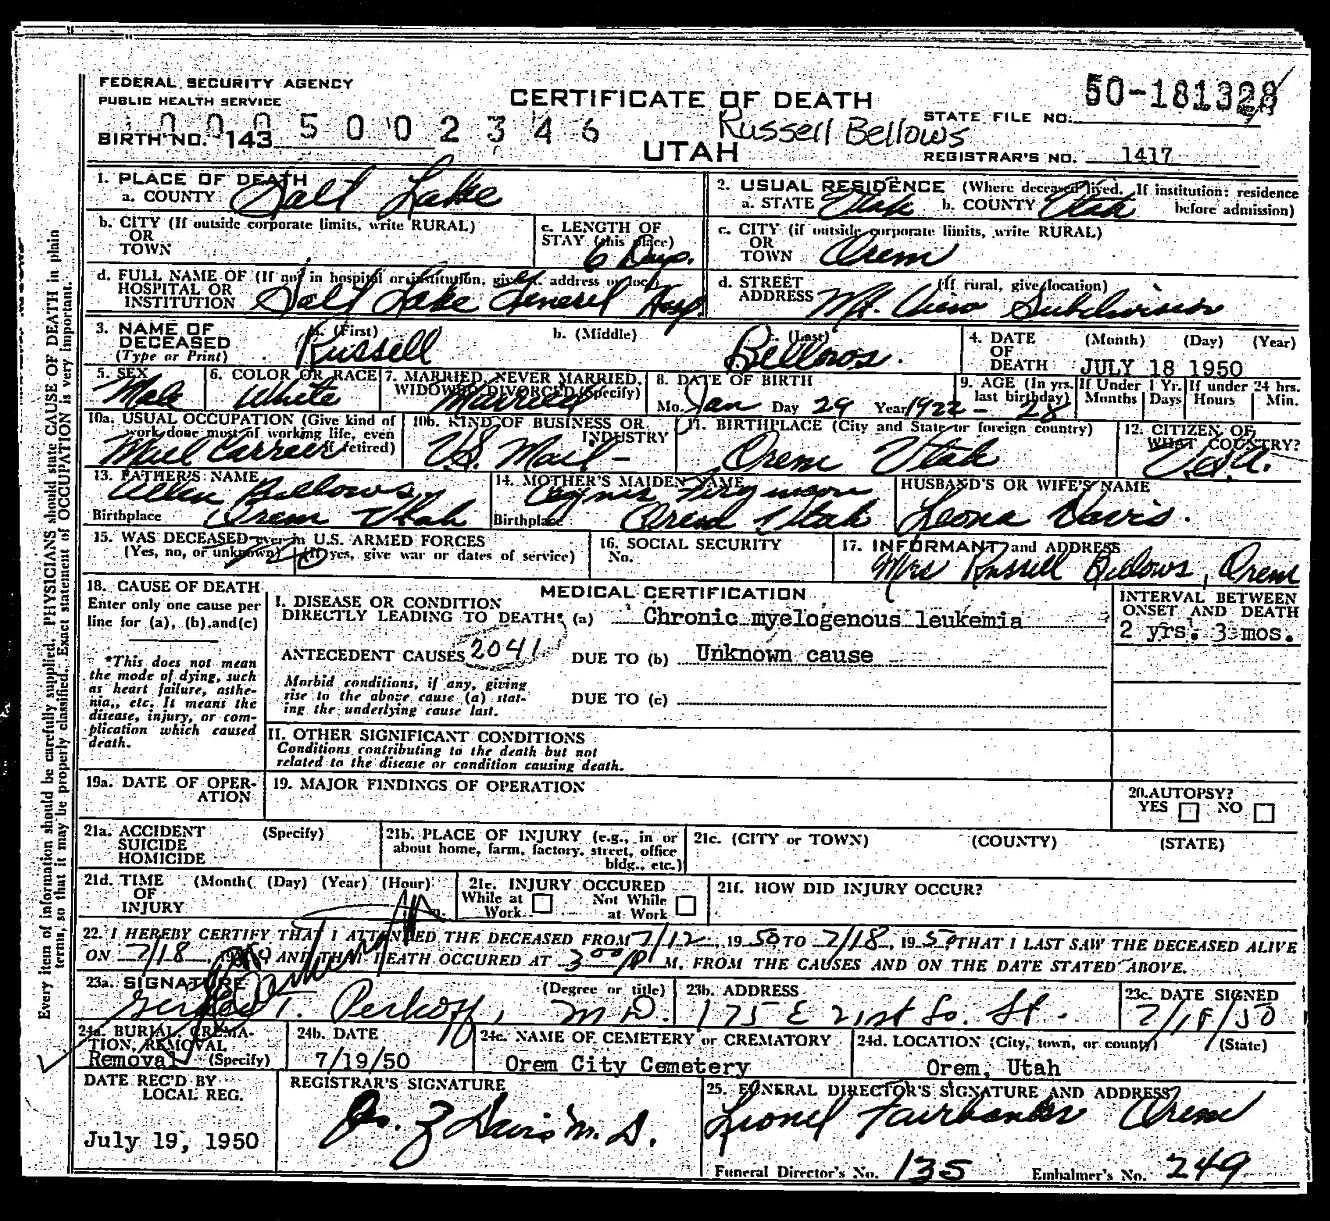 FEDERAL SECURITY AGENCY
PUBLIC HEALTH SERVICE
CERTIFICATE OF DEATH
50-181328
STATE FILE NO.
BIRTH NO. 143
0 0 0 5 0 0 2 3 4 6
Russell Bellows
UTAH
REGISTRAR'S NO. 1417
1. PLACE OF DEATH
a. COUNTY Salt Lake
2. USUAL RESIDENCE (Where deceased lived. If institution: residence before admission)
a. STATE Utah b. COUNTY Utah
b. CITY (If outside corporate limits, write RURAL)
OR
TOWN
c. LENGTH OF
STAY (this place)
6 Days.
c. CITY (if outside corporate limits, write RURAL)
OR
TOWN Orem
d. FULL NAME OF (If not in hospital or institution, give st. address or loc.)
HOSPITAL OR
INSTITUTION Salt Lake General Hosp
d. STREET (If rural, give location)
ADDRESS Mt. View Subdivision
3. NAME OF
DECEASED
(Type or Print)
a. (First) Russell
b. (Middle)
c. (Last) Bellows.
4. DATE OF DEATH (Month) (Day) (Year)
JULY 18 1950
5. SEX Male
6. COLOR OR RACE White
7. MARRIED, NEVER MARRIED,
WIDOWED, DIVORCED (Specify)
Married
8. DATE OF BIRTH
Mo. Jan Day 29 Year 1922 -
9. AGE (In yrs. last birthday) 28
If Under 1 Yr. Months Days
If under 24 hrs. Hours Min.
10a. USUAL OCCUPATION (Give kind of
work done most of working life, even
if retired)
Mail Carrier
10b. KIND OF BUSINESS OR
INDUSTRY
U.S. Mail -
11. BIRTHPLACE (City and State or foreign country)
Orem Utah
12. CITIZEN OF
WHAT COUNTRY?
U.S.A.
13. FATHER'S NAME
Allen Bellows
Birthplace Orem Utah
14. MOTHER'S MAIDEN NAME
Agnes Ferguson
Birthplace Orem Utah
HUSBAND'S OR WIFE'S NAME
Leona Davis.
15. WAS DECEASED ever in U.S. ARMED FORCES
(Yes, no, or unknown) (If yes, give war or dates of service)
16. SOCIAL SECURITY
No.
17. INFORMANT and ADDRESS
Mrs Russell Bellows, Orem
18. CAUSE OF DEATH
Enter only one cause per
line for (a), (b), and (c)
*This does not mean
the mode of dying, such
as heart failure, asthe-
nia, etc. It means the
disease, injury, or com-
plication which caused
death.
MEDICAL CERTIFICATION
I. DISEASE OR CONDITION
DIRECTLY LEADING TO DEATH* (a) Chronic myelogenous leukemia
ANTECEDENT CAUSES 2041
DUE TO (b) Unknown cause
Morbid conditions, if any, giving
rise to the above cause (a) stat-
ing the underlying cause last.
DUE TO (c)
II. OTHER SIGNIFICANT CONDITIONS
Conditions contributing to the death but not
related to the disease or condition causing death.
INTERVAL BETWEEN
ONSET AND DEATH
2 yrs. 3 mos.
19a. DATE OF OPER-
ATION
19. MAJOR FINDINGS OF OPERATION
20. AUTOPSY?
YES NO
21a. ACCIDENT (Specify)
SUICIDE
HOMICIDE
21b. PLACE OF INJURY (e.g., in or
about home, farm, factory, street, office
bldg., etc.)
21c. (CITY or TOWN) (COUNTY) (STATE)
21d. TIME (Month) (Day) (Year) (Hour)
OF
INJURY
21e. INJURY OCCURED
While at Work
Not While at Work
21f. HOW DID INJURY OCCUR?
22. I HEREBY CERTIFY THAT I ATTENDED THE DECEASED FROM 7/12, 1950 TO 7/18, 1950 THAT I LAST SAW THE DECEASED ALIVE
ON 7/18, 1950 AND THAT DEATH OCCURED AT 3 00 P M. FROM THE CAUSES AND ON THE DATE STATED ABOVE.
23a. SIGNATURE (Degree or title)
T. Perkoff, M.D.
23b. ADDRESS
175 E 21st So. St.
23c. DATE SIGNED
7/18/50
24a. BURIAL, CREMA-
TION, REMOVAL
Removal (Specify)
24b. DATE
7/19/50
24c. NAME OF CEMETERY or CREMATORY
Orem City Cemetery
24d. LOCATION (City, town, or county) (State)
Orem, Utah
DATE REC'D BY
LOCAL REG.
July 19, 1950
REGISTRAR'S SIGNATURE
25. FUNERAL DIRECTOR'S SIGNATURE AND ADDRESS
Lionel Fairbanks Orem
Funeral Director's No. 135 Embalmer's No. 249
Every item of information should be carefully supplied. PHYSICIANS should state CAUSE OF DEATH in plain
terms, so that it may be properly classified. Exact statement of OCCUPATION is very important.